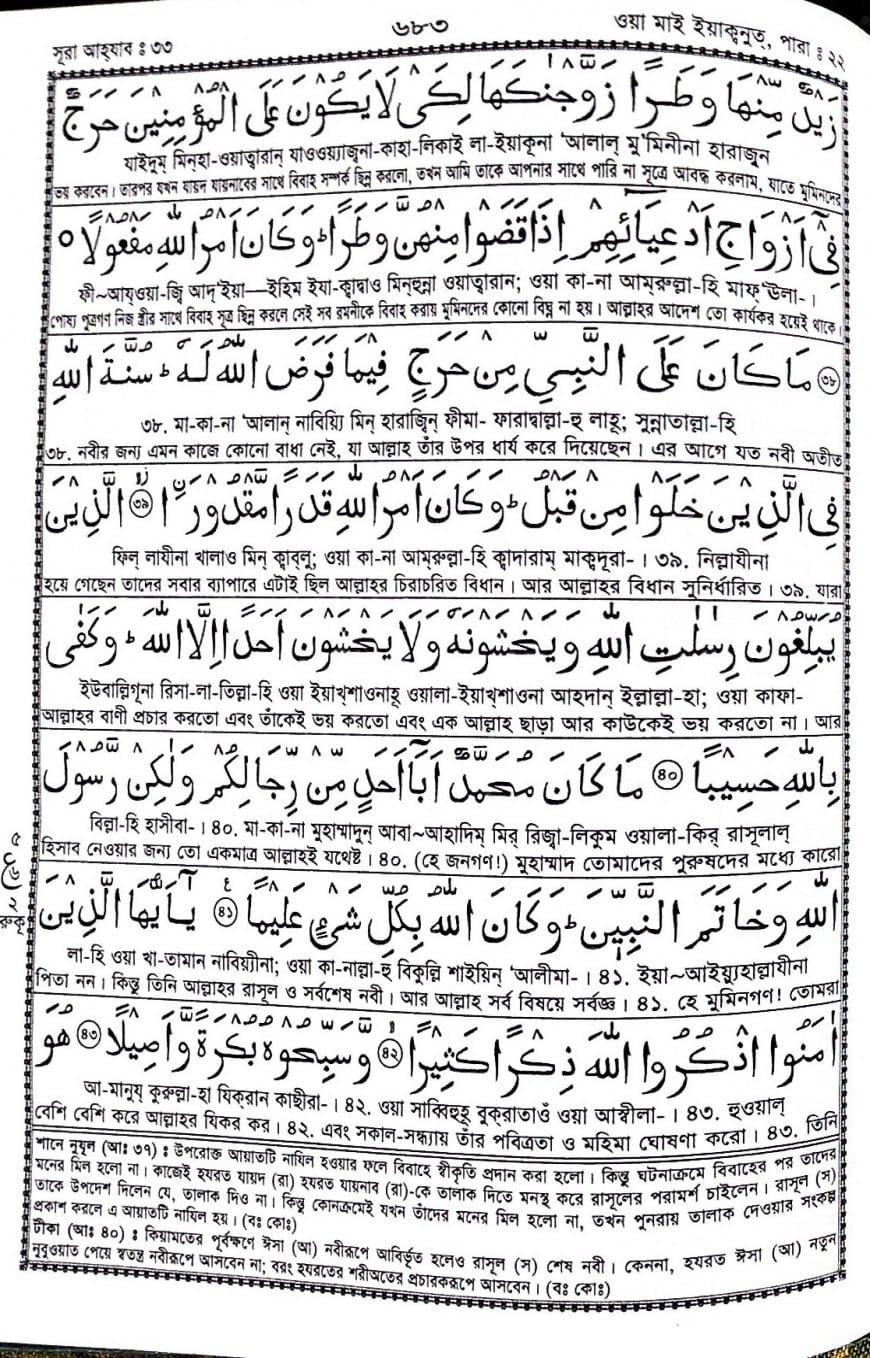 সূরা আহ্‌যাব : ৩৩ ৬৮৩ ওয়া মাই ইয়াক্বনুত্, পারা : ২২
زَيْدٌ مِّنْهَا وَطَرًا زَوَّجْنٰكَهَا لِكَىْ لَا يَكُوْنَ عَلَى الْمُؤْمِنِيْنَ حَرَجٌ
যাইদুম্ মিন্‌হা-ওয়াত্বারান্ যাওওয়্যাজ্না-কাহা-লিকাই লা-ইয়াকূনা ‘আলাল্ মু’মিনীনা হারাজুন
ভয় করবেন। তারপর যখন যায়দ যায়নাবের সাথে বিবাহ সম্পর্ক ছিন্ন করলো, তখন আমি তাকে আপনার সাথে পারি না সূত্রে আবদ্ধ করলাম, যাতে মুমিনদের
فِىْٓ اَزْوَاجِ اَدْعِيَآئِهِمْ اِذَا قَضَوْا مِنْهُنَّ وَطَرًا ؕ وَكَانَ اَمْرُ اللهِ مَفْعُوْلًا ○
ফী~আয্ওয়া-জ্বি আদ্‘ইয়া—ইহিম ইযা-ক্বাদ্বাও মিন্‌হুন্না ওয়াত্বারান; ওয়া কা-না আম্‌রুল্লা-হি মাফ্‘ঊলা-।
পোষ্য পুত্রগণ নিজ স্ত্রীর সাথে বিবাহ সূত্র ছিন্ন করলে সেই সব রমনীকে বিবাহ করায় মুমিনদের কোনো বিঘ্ন না হয়। আল্লাহর আদেশ তো কার্যকর হয়েই থাকে।
৩৮ مَا كَانَ عَلَى النَّبِىِّ مِنْ حَرَجٍ فِيْمَا فَرَضَ اللهُ لَهٗ ؕ سُنَّةَ اللهِ
৩৮. মা-কা-না ‘আলান্ নাবিয়্যি মিন্ হারাজ্বিন্ ফীমা- ফারাদ্বাল্লা-হু লাহূ; সুন্নাতাল্লা-হি
৩৮. নবীর জন্য এমন কাজে কোনো বাধা নেই, যা আল্লাহ তাঁর উপর ধার্য করে দিয়েছেন। এর আগে যত নবী অতীত
فِى الَّذِيْنَ خَلَوْا مِنْ قَبْلُ ؕ وَكَانَ اَمْرُ اللهِ قَدَرًا مَّقْدُوْرًا ৩৯ الَّذِيْنَ
ফিল্ লাযীনা খালাও মিন্ ক্বাব্‌লু; ওয়া কা-না আম্‌রুল্লা-হি ক্বাদারাম্ মাক্বদূরা-। ৩৯. নিল্লাযীনা
হয়ে গেছেন তাদের সবার ব্যাপারে এটাই ছিল আল্লাহর চিরাচরিত বিধান। আর আল্লাহর বিধান সুনির্ধারিত। ৩৯. যারা
يُبَلِّغُوْنَ رِسٰلٰتِ اللهِ وَيَخْشَوْنَهٗ وَلَا يَخْشَوْنَ اَحَدًا اِلَّا اللهَ ؕ وَكَفٰى
ইউবাল্লিগূনা রিসা-লা-তিল্লা-হি ওয়া ইয়াখ্‌শাওনাহূ ওয়ালা-ইয়াখ্‌শাওনা আহদান্ ইল্লাল্লা-হা; ওয়া কাফা-
আল্লাহর বাণী প্রচার করতো এবং তাঁকেই ভয় করতো এবং এক আল্লাহ ছাড়া আর কাউকেই ভয় করতো না। আর
بِاللهِ حَسِيْبًا ৪০ مَا كَانَ مُحَمَّدٌ اَبَآ اَحَدٍ مِّنْ رِّجَالِكُمْ وَلٰكِنْ رَّسُوْلَ
বিল্লা-হি হাসীবা-। ৪০. মা-কা-না মুহাম্মাদুন্ আবা~আহাদিম্ মির্ রিজ্বা-লিকুম ওয়ালা-কির্ রাসূলাল্
হিসাব নেওয়ার জন্য তো একমাত্র আল্লাহই যথেষ্ট। ৪০. (হে জনগণ!) মুহাম্মাদ তোমাদের পুরুষদের মধ্যে কারো
اللهِ وَخَاتَمَ النَّبِيّٖنَ ؕ وَكَانَ اللهُ بِكُلِّ شَىْءٍ عَلِيْمًا ৪১ يٰٓاَيُّهَا الَّذِيْنَ
লা-হি ওয়া খা-তামান নাবিয়্যীনা; ওয়া কা-নাল্লা-হু বিকুল্লি শাইয়িন্ ‘আলীমা-। ৪১. ইয়া~আইয়্যুহাল্লাযীনা
পিতা নন। কিন্তু তিনি আল্লাহর রাসূল ও সর্বশেষ নবী। আর আল্লাহ সর্ব বিষয়ে সর্বজ্ঞ। ৪১. হে মুমিনগণ! তোমরা
৫
২
রুকূ
اٰمَنُوا اذْكُرُوا اللهَ ذِكْرًا كَثِيْرًا ৪২ وَّسَبِّحُوْهُ بُكْرَةً وَّاَصِيْلًا ৪৩ هُوَ
আ-মানুয্ কুরুল্লা-হা যিক্‌রান কাছীরা-। ৪২. ওয়া সাব্বিহূহু বুক্‌রাতাওঁ ওয়া আস্বীলা-। ৪৩. হুওয়াল্
বেশি বেশি করে আল্লাহর যিকর কর। ৪২. এবং সকাল-সন্ধ্যায় তাঁর পবিত্রতা ও মহিমা ঘোষণা করো। ৪৩. তিনি
শানে নুযূল (আঃ ৩৭) : উপরোক্ত আয়াতটি নাযিল হওয়ার ফলে বিবাহে স্বীকৃতি প্রদান করা হলো। কিন্তু ঘটনাক্রমে বিবাহের পর তাদের
মনের মিল হলো না। কাজেই হযরত যায়দ (রা) হযরত যায়নাব (রা)-কে তালাক দিতে মনস্থ করে রাসূলের পরামর্শ চাইলেন। রাসূল (স)
তাকে উপদেশ দিলেন যে, তালাক দিও না। কিন্তু কোনক্রমেই যখন তাঁদের মনের মিল হলো না, তখন পুনরায় তালাক দেওয়ার সংকল্প
প্রকাশ করলে এ আয়াতটি নাযিল হয়। (বঃ কোঃ)
টীকা (আঃ ৪০) : কিয়ামতের পূর্বক্ষণে ঈসা (আ) নবীরূপে আবির্ভূত হলেও রাসূল (স) শেষ নবী। কেননা, হযরত ঈসা (আ) নতুন
নুবুওয়াত পেয়ে স্বতন্ত্র নবীরূপে আসবেন না; বরং হযরতের শরীঅতের প্রচারকরূপে আসবেন। (বঃ কোঃ)